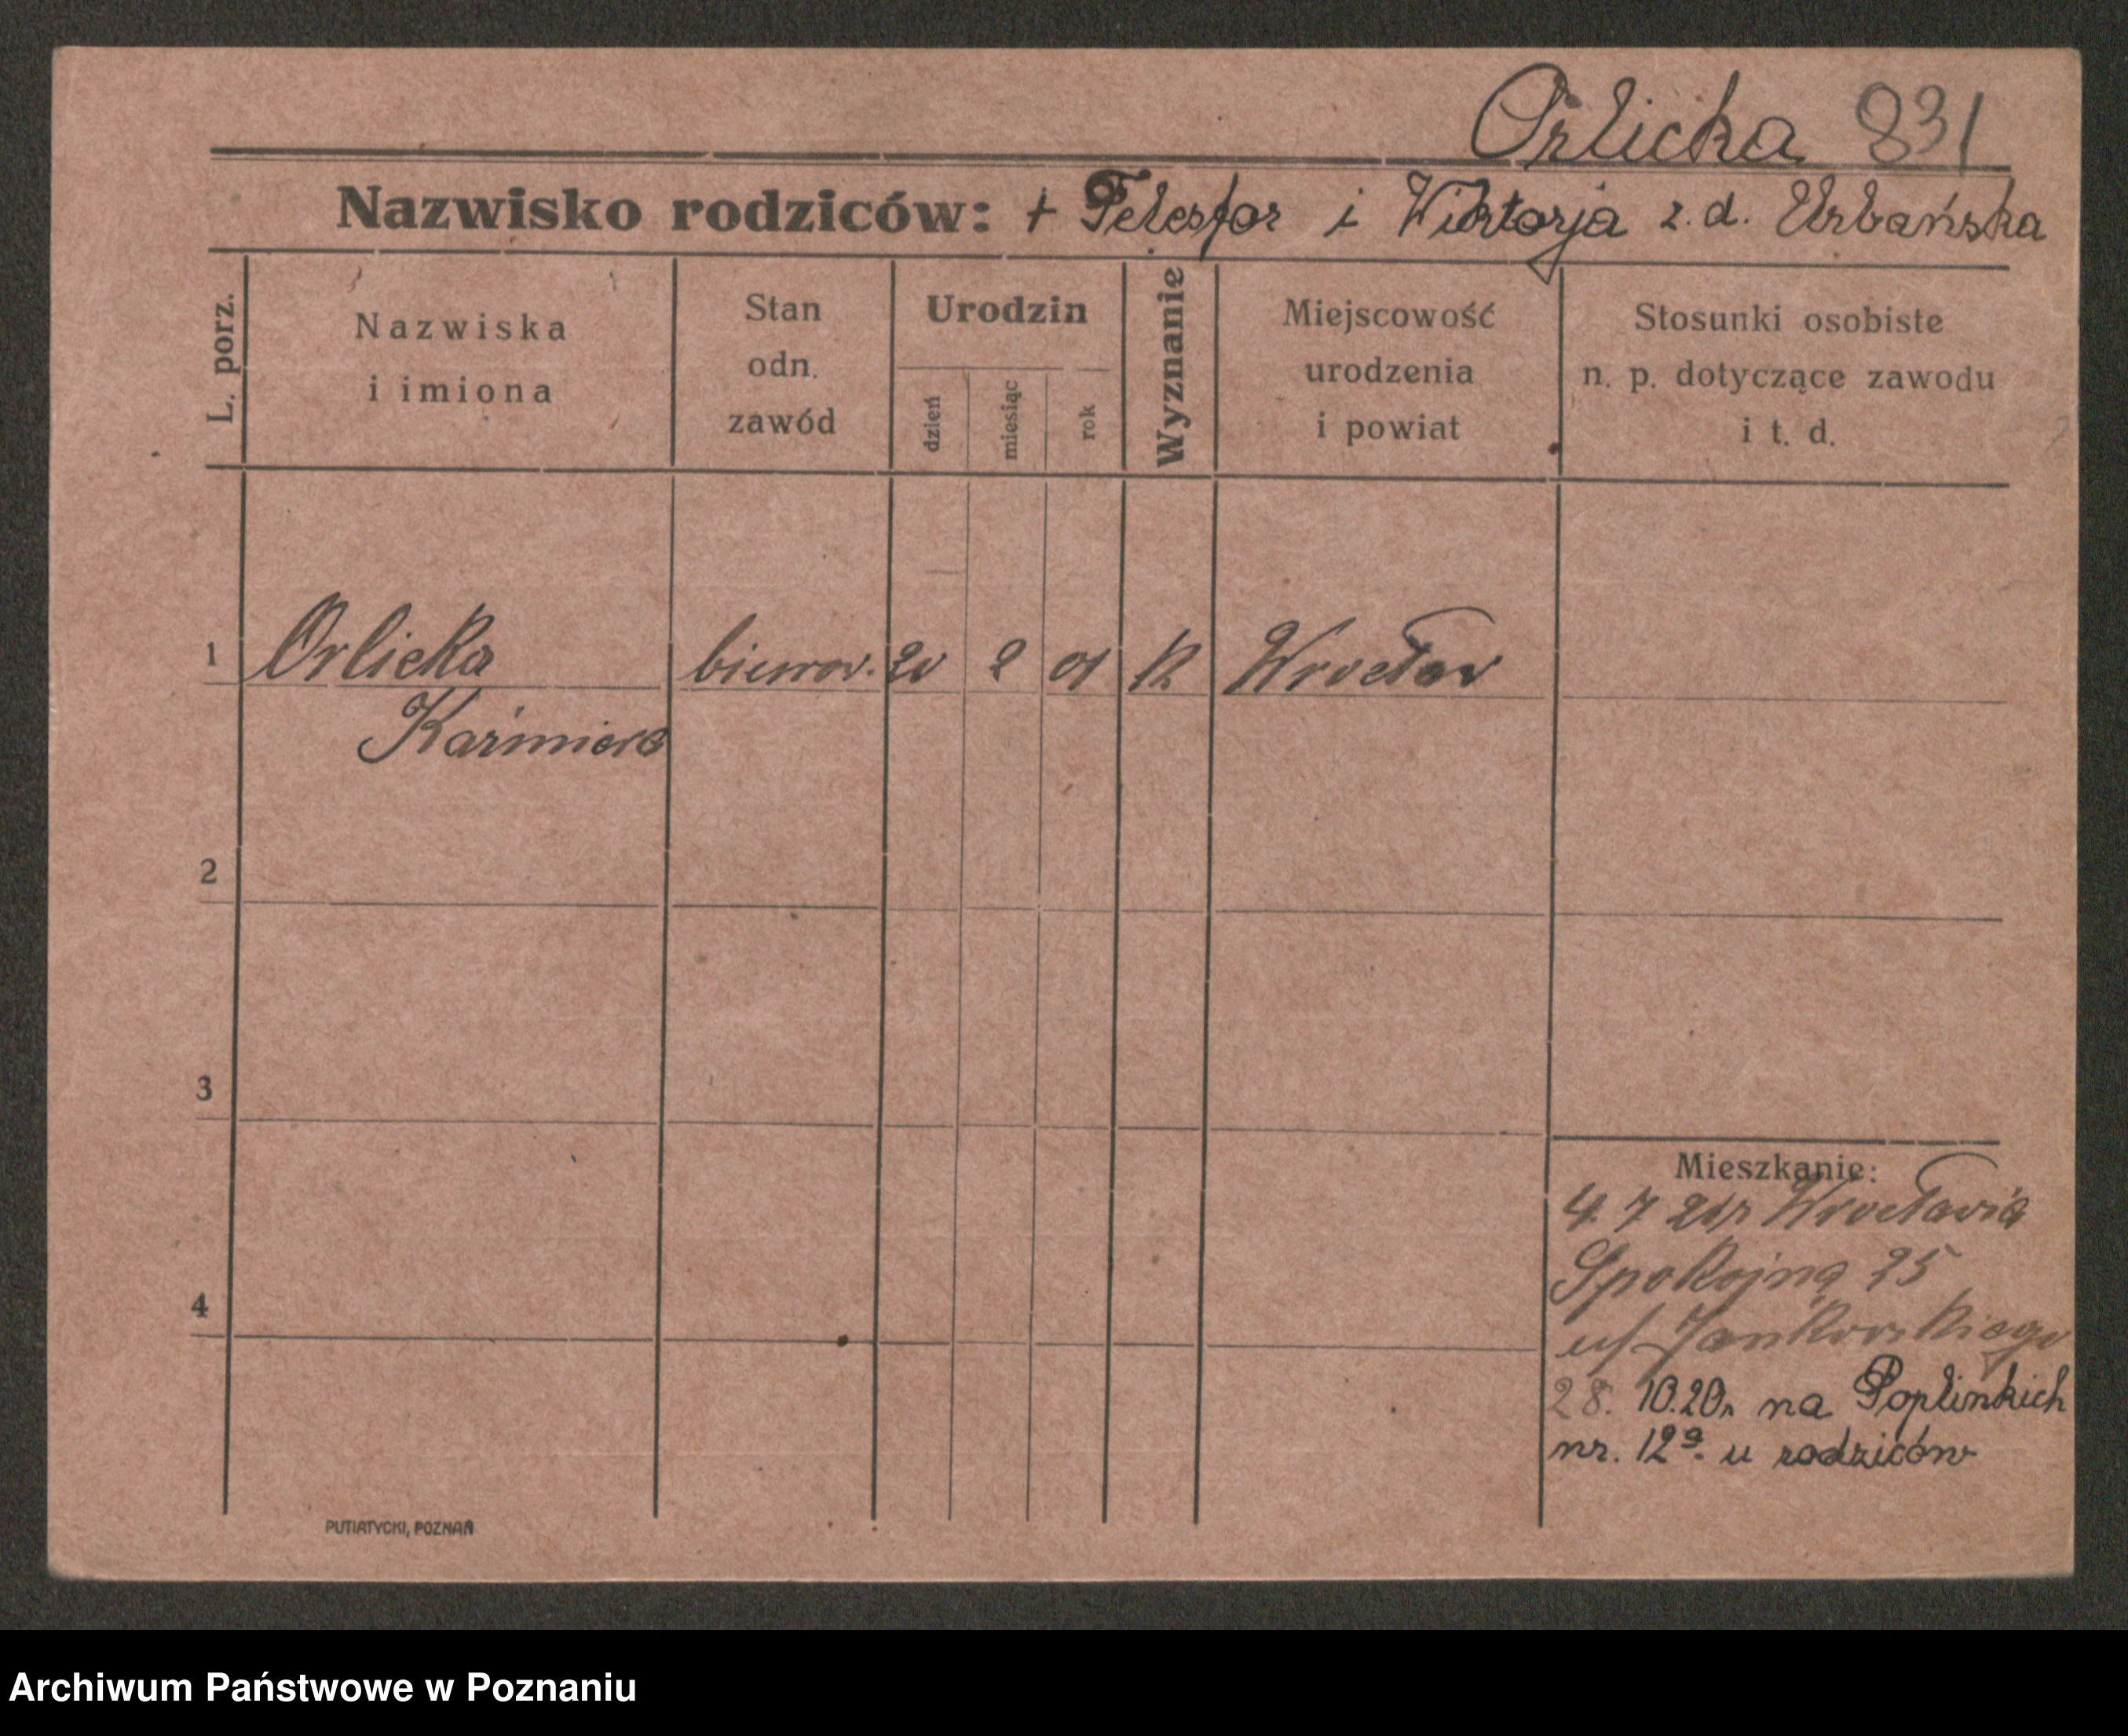 Orlicka 831
Nazwisko rodziców: + Telesfor i Wiktorja z.d. Urbańska
L. porz.
Nazwiska i imiona
Stan odn. zawód
Urodzin
dzień
miesiąc
rok
Wyznanie
Miejscowość urodzenia i powiat
Stosunki osobiste n. p. dotyczące zawodu i t. d.
1 Orlicka biurow. 20 2 01 K Wrocław
Kaźmiera
2
3
4
Mieszkanie:
4 7 21r Wrocławia
Spokojną 25
Jankowskiego
28. 10.20r na Poplinkich
nr. 12a u rodziców
PUTIATYCKI, POZNAŃ
Archiwum Państwowe w Poznaniu